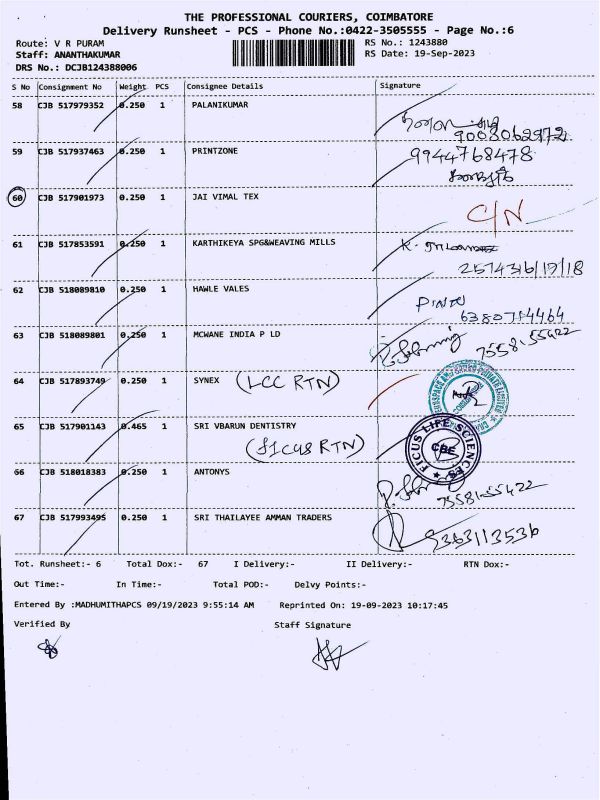 THE PROFESSIONAL COURIERS, COIMBATORE
Delivery Runsheet - PCS - Phone No.:0422-3505555 - Page No.:6
Route: V R PURAM RS No.: 1243880
Staff: ANANTHAKUMAR RS Date: 19-Sep-2023
DRS No.: DCJB124388006
S No Consignment No Weight PCS Consignee Details Signature
58 CJB 517979352 0.250 1 PALANIKUMAR
9003062972
59 CJB 517937463 0.250 1 PRINTZONE 9944768478
60 CJB 517901973 0.250 1 JAI VIMAL TEX C/N
61 CJB 517853591 0.250 1 KARTHIKEYA SPG&WEAVING MILLS K.
2574316/17/18
62 CJB 518089810 0.250 1 HAWLE VALES
63 CJB 518089801 0.250 1 MCWANE INDIA P LD 7558155422
64 CJB 517893749 0.250 1 SYNEX (LCC RTN)
65 CJB 517901143 0.465 1 SRI VBARUN DENTISTRY
(FICUS RTN) FICUS LIFE SCIENCES CBE
66 CJB 518018383 0.250 1 ANTONYS
7558155422
67 CJB 517993495 0.250 1 SRI THAILAYEE AMMAN TRADERS
9363113536
Tot. Runsheet:- 6 Total Dox:- 67 I Delivery:- II Delivery:- RTN Dox:-
Out Time:- In Time:- Total POD:- Delvy Points:-
Entered By :MADHUMITHAPCS 09/19/2023 9:55:14 AM Reprinted On: 19-09-2023 10:17:45
Verified By Staff Signature